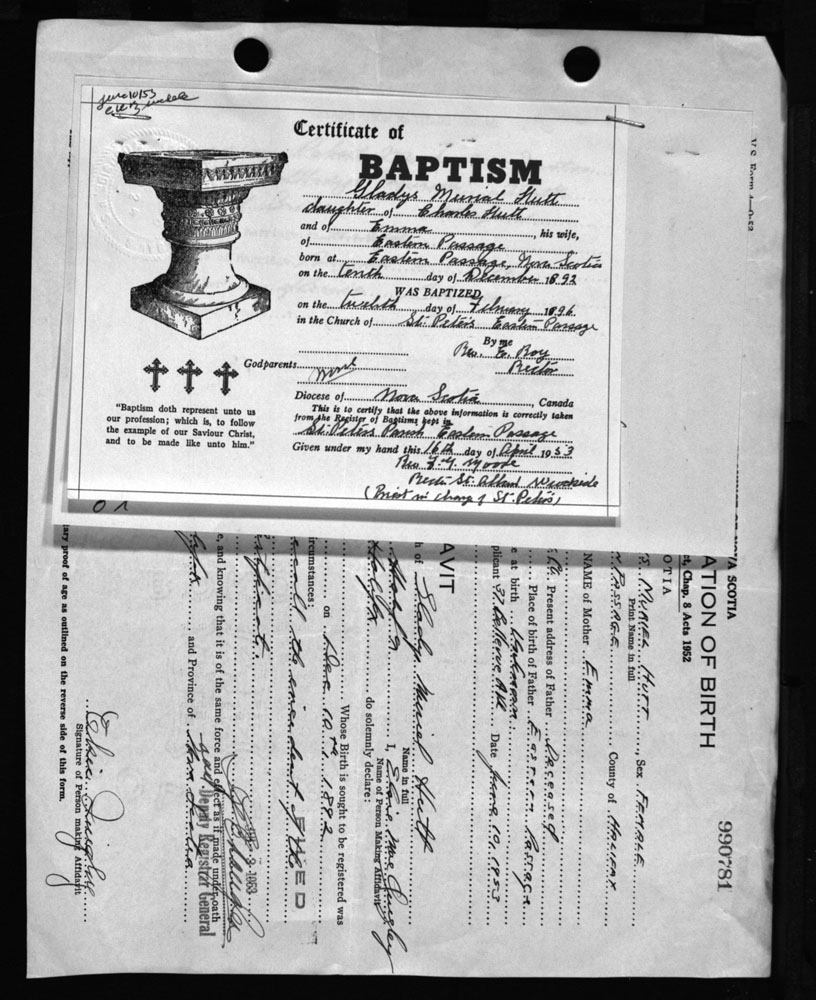 June 10/53
Certificate of
BAPTISM
Gladys Murial Hutt
daughter of Charles Hutt
and of Emma, his wife,
of Eastern Passage
born at Eastern Passage, Nova Scotia
on the tenth day of December 1892
WAS BAPTIZED
on the twelfth day of February 1896
in the Church of St. Peter's Eastern Passage
By me
Rev. E. Roy
Rector
Godparents
Diocese of Nova Scotia, Canada
This is to certify that the above information is correctly taken
from the Register of Baptisms kept in
St. Peters Parish Eastern Passage
Given under my hand this 16th day of April 1953
Rev
(Priest in charge of St. Peter's)
"Baptism doth represent unto us
our profession; which is, to follow
the example of our Saviour Christ,
and to be made like unto him."
990781
VA SCOTIA
ATION OF BIRTH
ct, Chap. 8 Acts 1952
OTIA
Muriel Hutt, Sex Female
Print Name in full
Passage County of Halifax
NAME of Mother Emma
Present address of Father Deceased
Place of birth of Father Eastern Passage
e at birth Unknown
plicant 37 Bellevue Ave Date June 10, 1953
AVIT
h of Gladys Muriel Hutt
Name in full
Halifax I,
Name of Person Making Affidavit
Halifax do solemnly declare:
Whose Birth is sought to be registered was
on Dec. 10th 1892
ircumstances:
recall the
e, and knowing that it is of the same force and effect as if made under oath
Deputy Registrar General
and Province of Nova Scotia
Signature of Person making Affidavit
tary proof of age as outlined on the reverse side of this form.